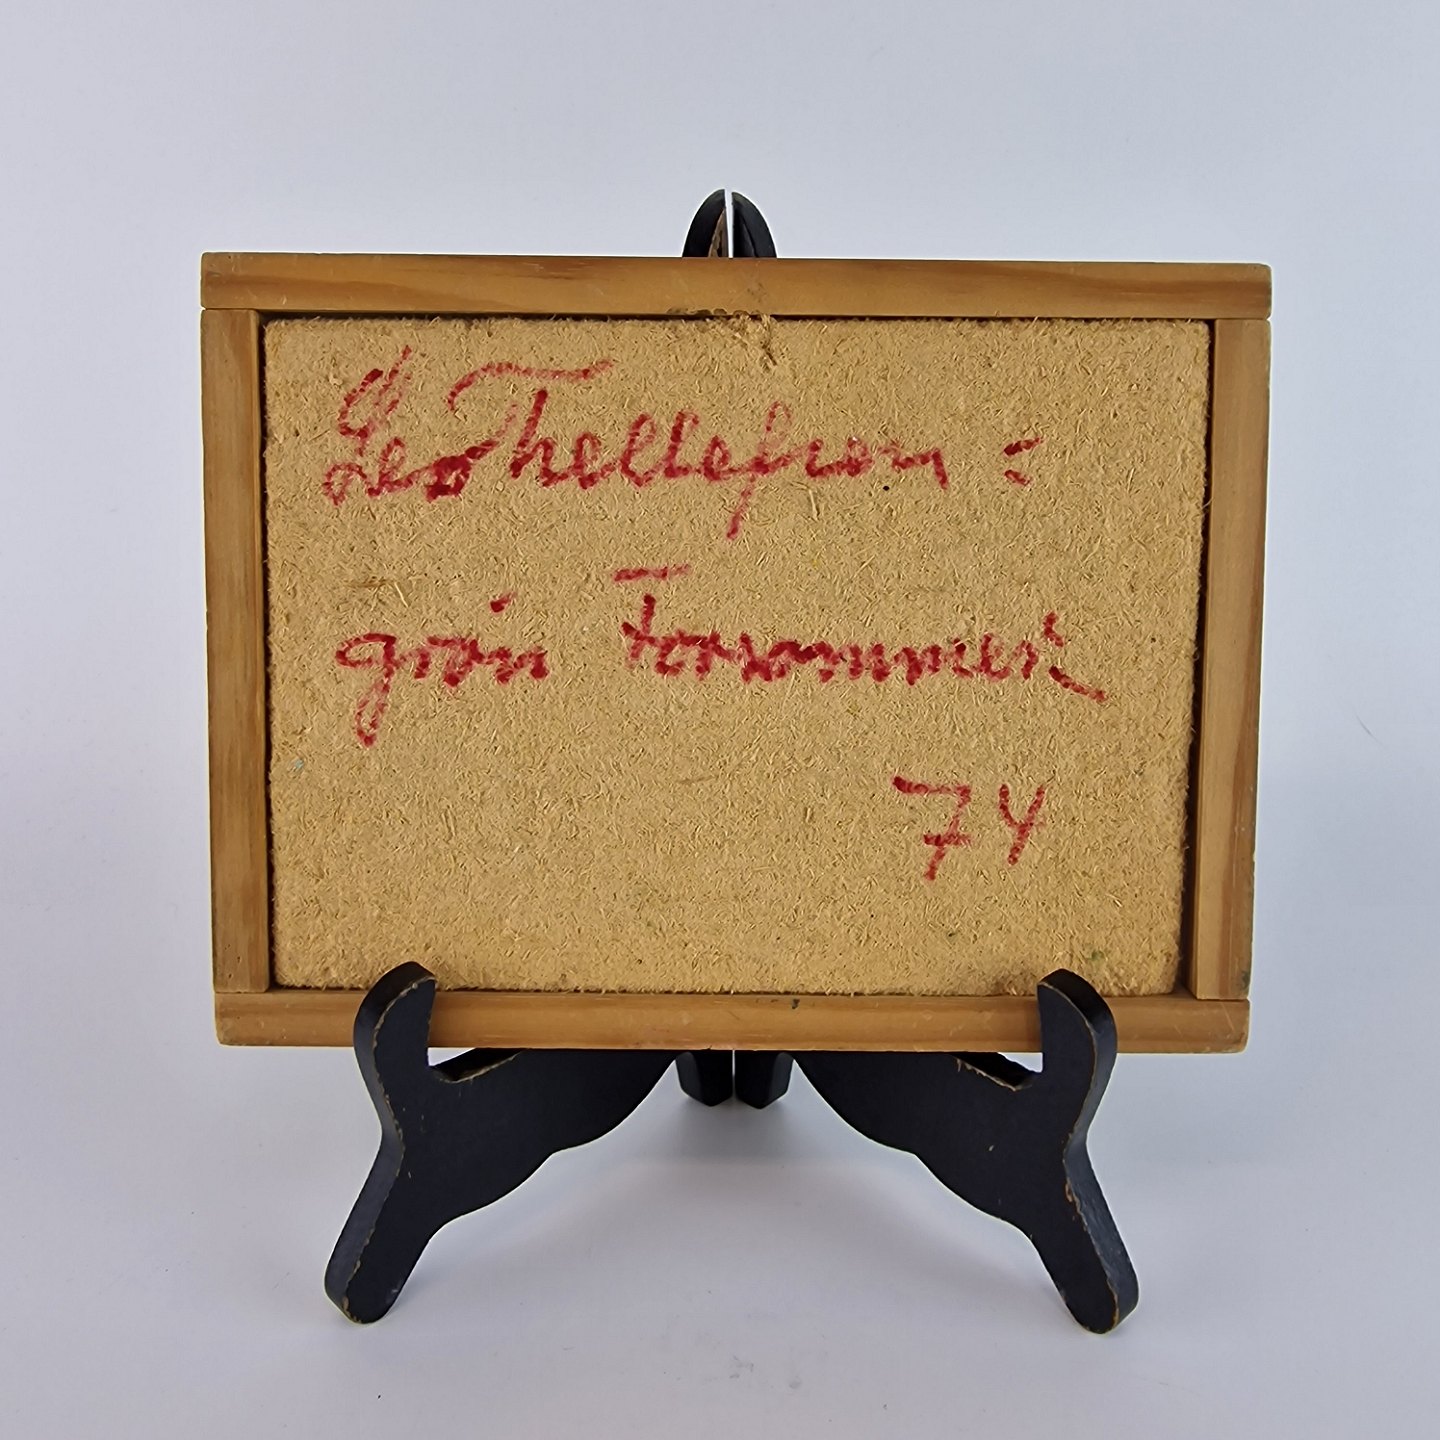 Leo Thellefsen :
grön Forsommer
74